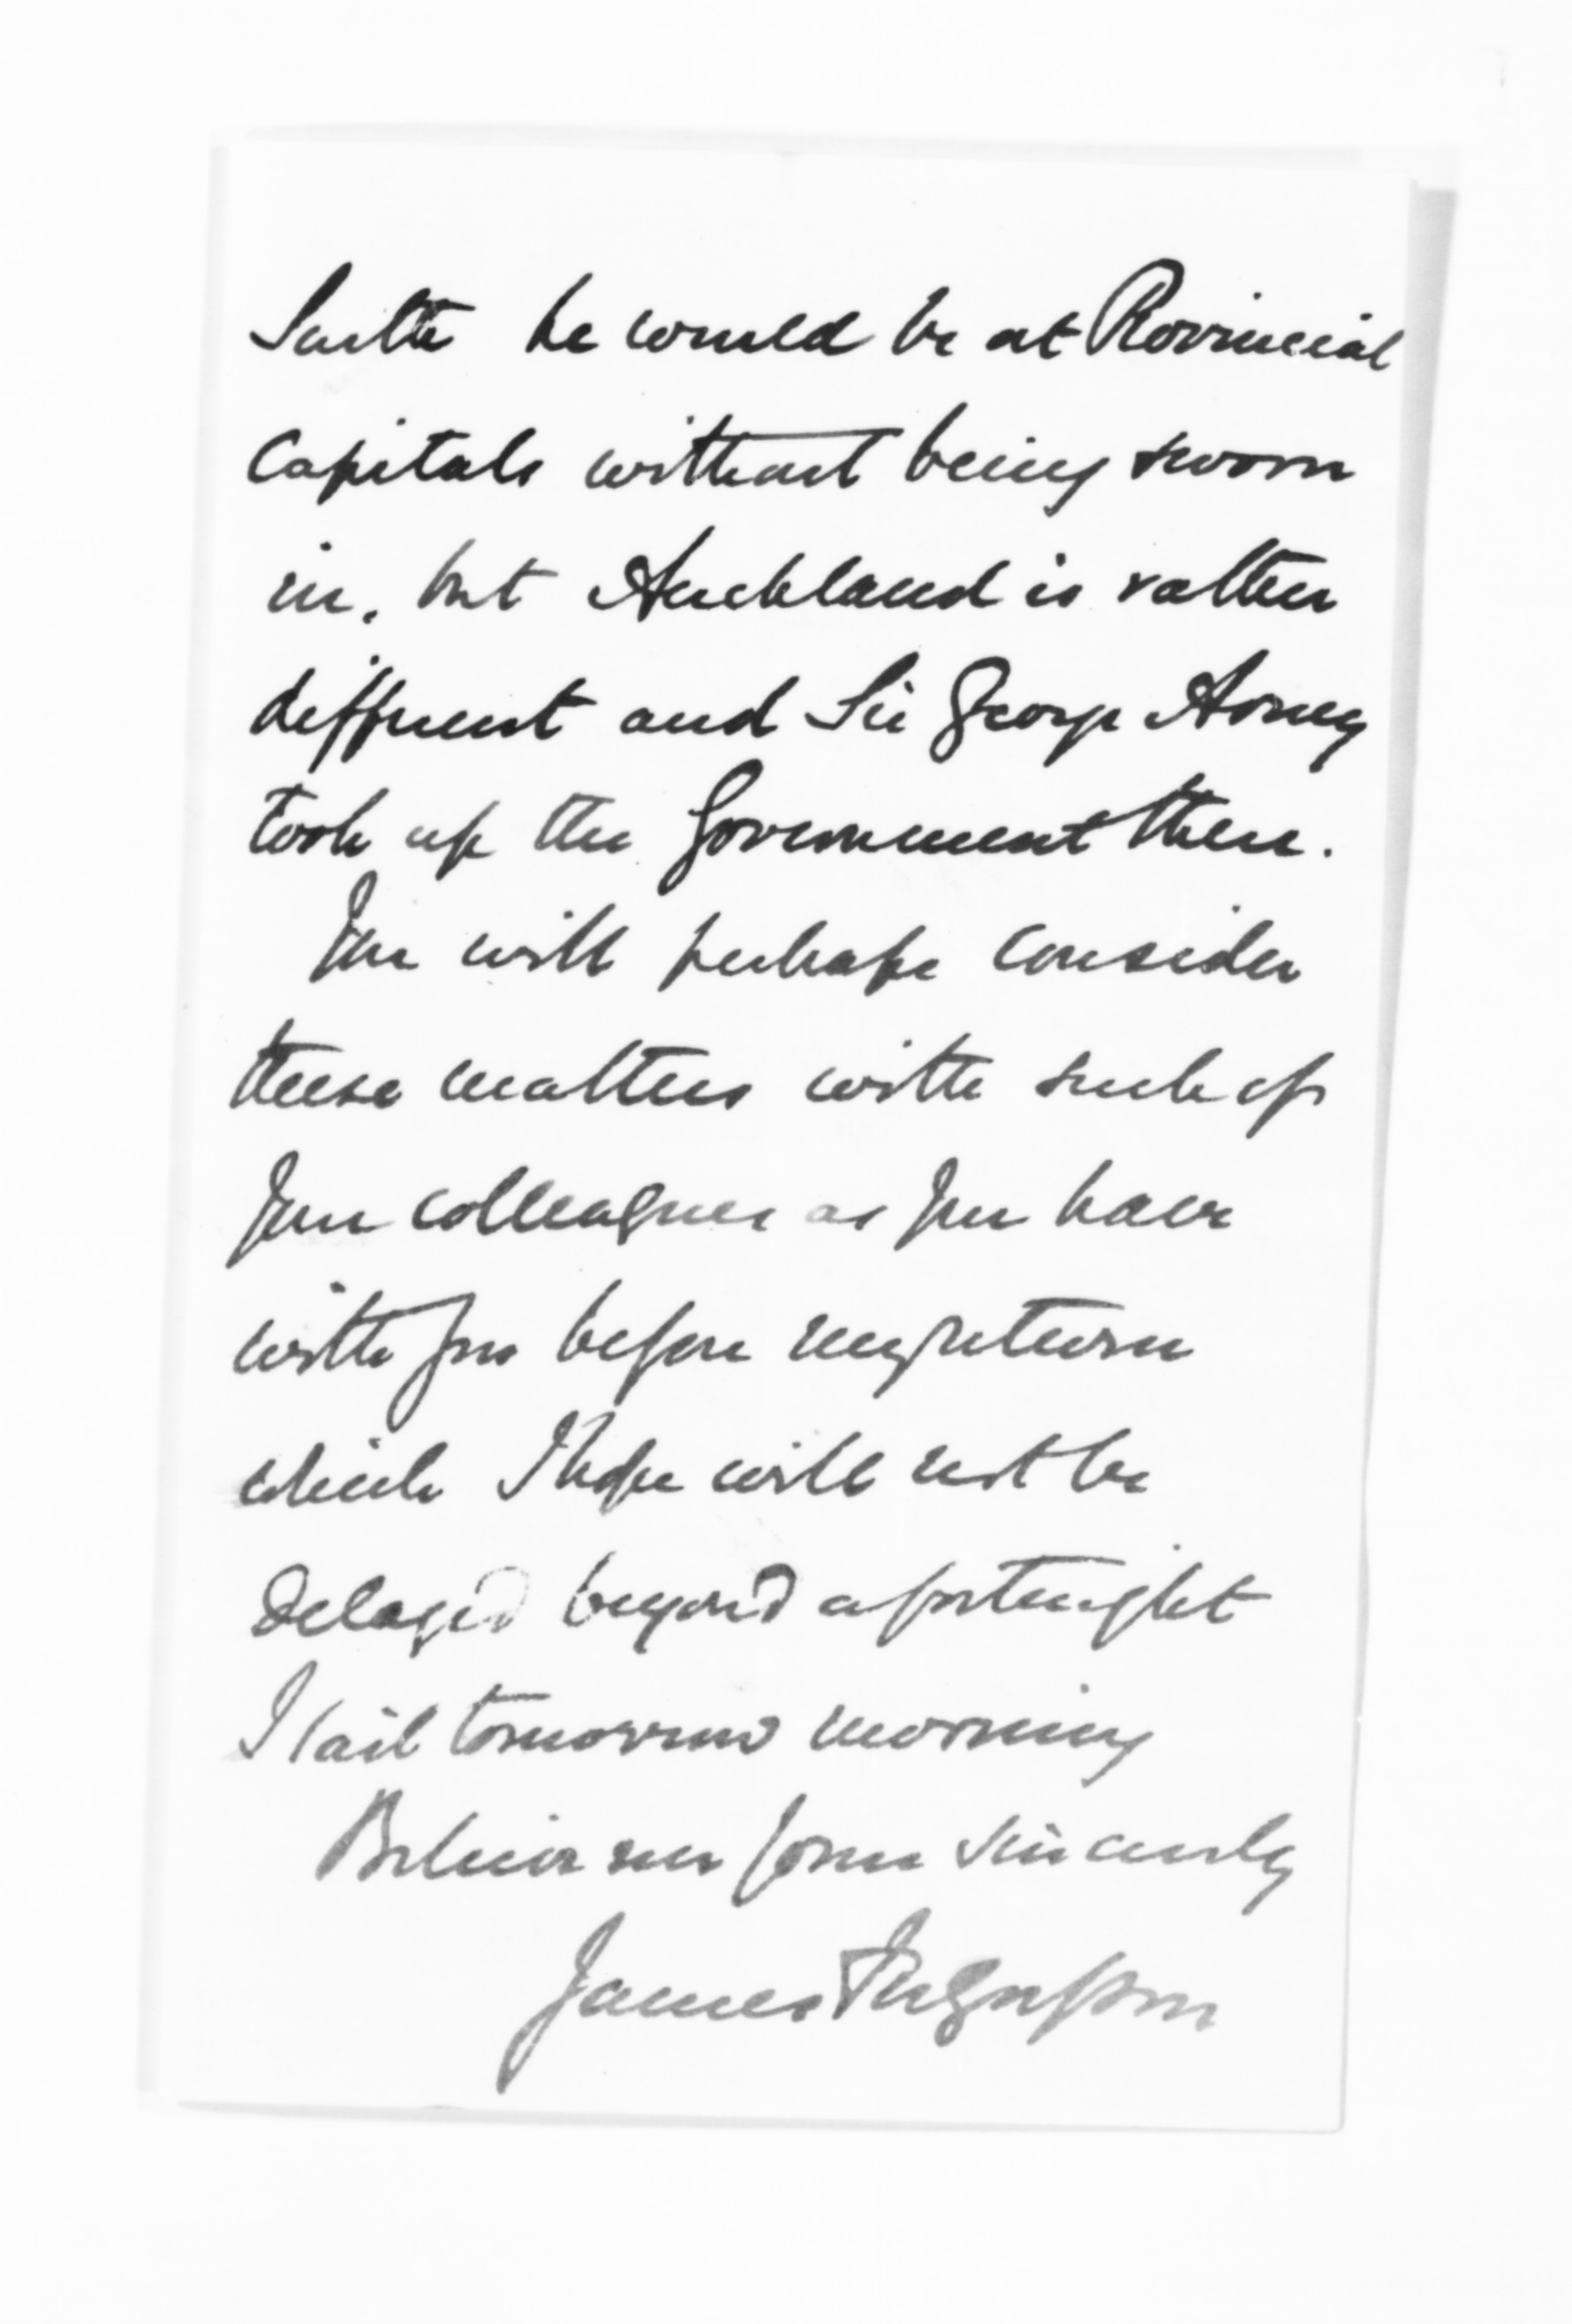 South he would be at Provincial
Capitals without being sworn
in, but Auckland is rather
different and Sir George Arney
took up the Government there.
You will perhaps consider
these matters with such of
your colleagues as you have
with you before my return
which I hope will not be
delayed beyond a fortnight
I sail tomorrow morning
Believe me yours sincerely
James Fergusson